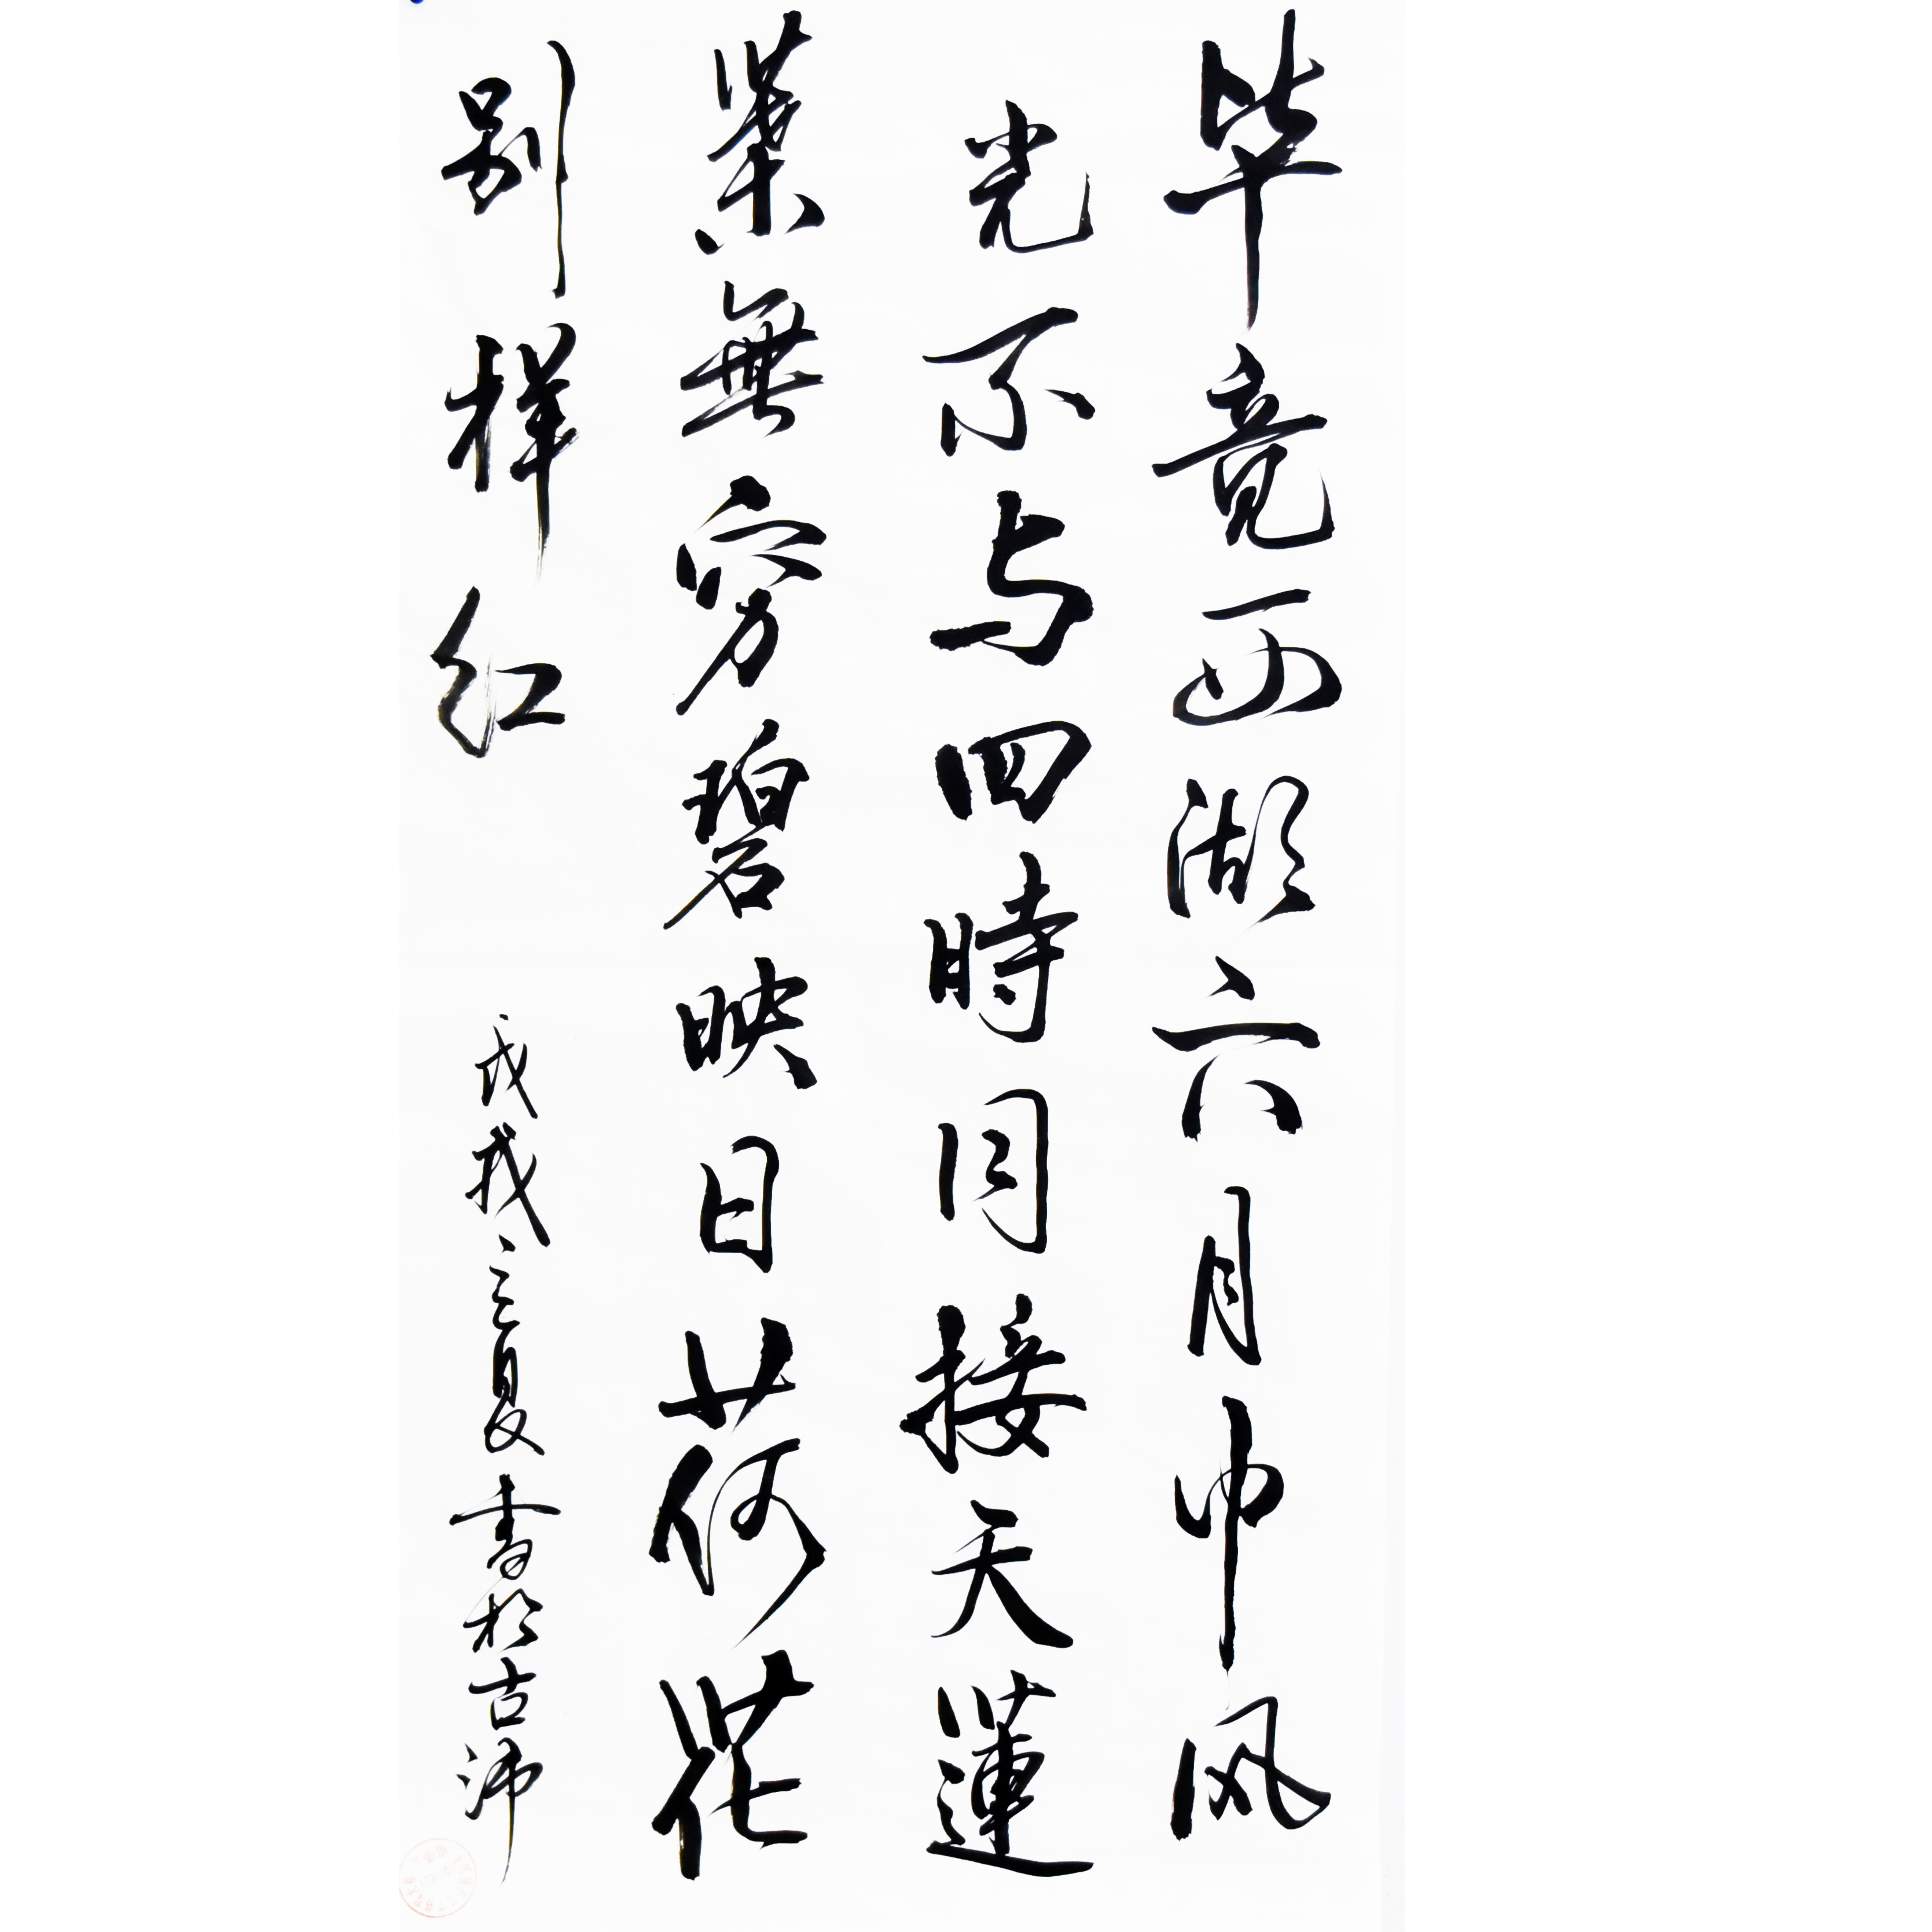 毕竟西湖六月中风
光不与四時同接天蓮
葉無穷碧映日荷花
别样红
戊戌之夏書於古沛